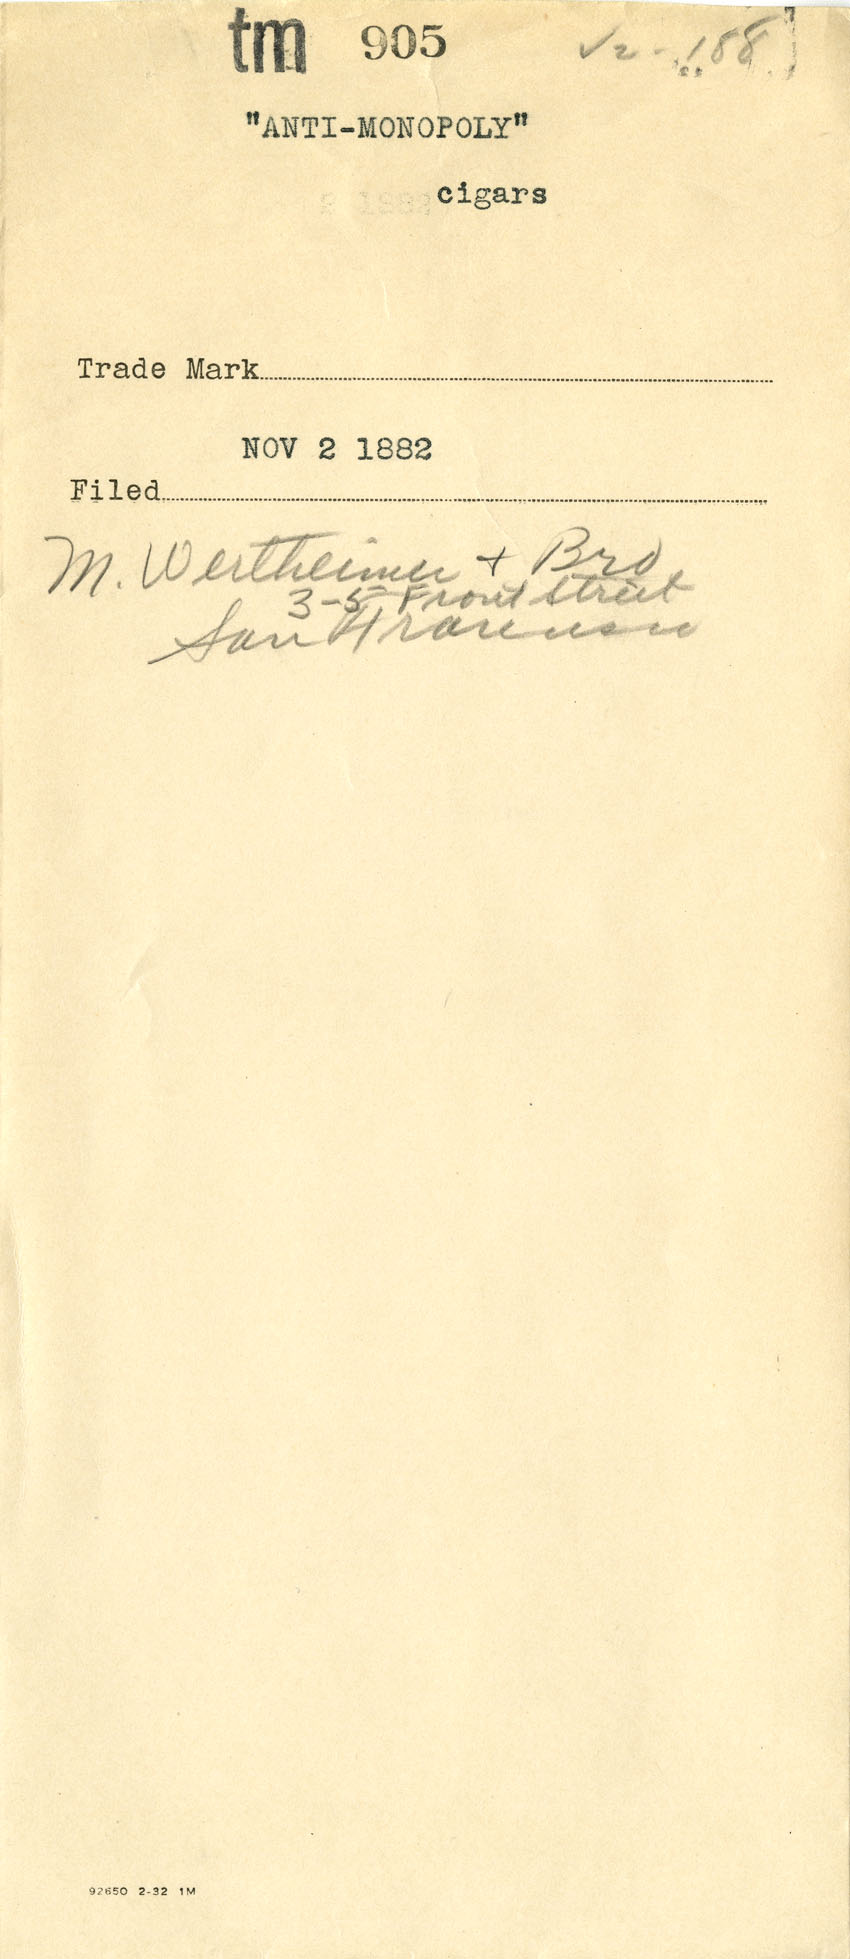 tm 905 √2-188
"ANTI-MONOPOLY"
2 1882 cigars
Trade Mark
NOV 2 1882
Filed
M. Wertheimer + Bro
3-5 Front Street
San Francisco
92650 2-32 1M